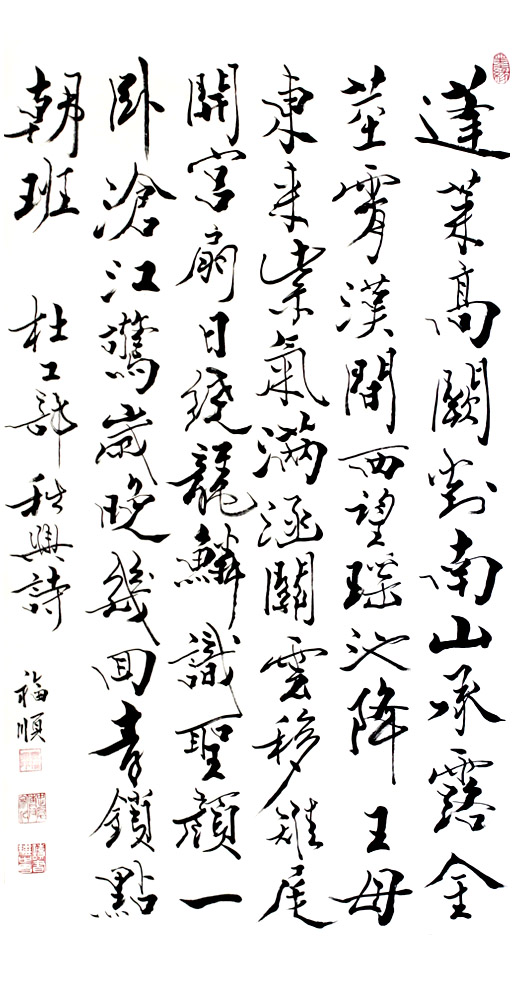 蓬莱高闕對南山承露金
莖霄漢間西望瑤池降王母
東来紫氣滿涵關雲移雉尾
開宮扇日繞龍鱗識聖顏一
卧滄江驚歲晚幾回青鎖點
朝班 杜工部秋興詩
福順